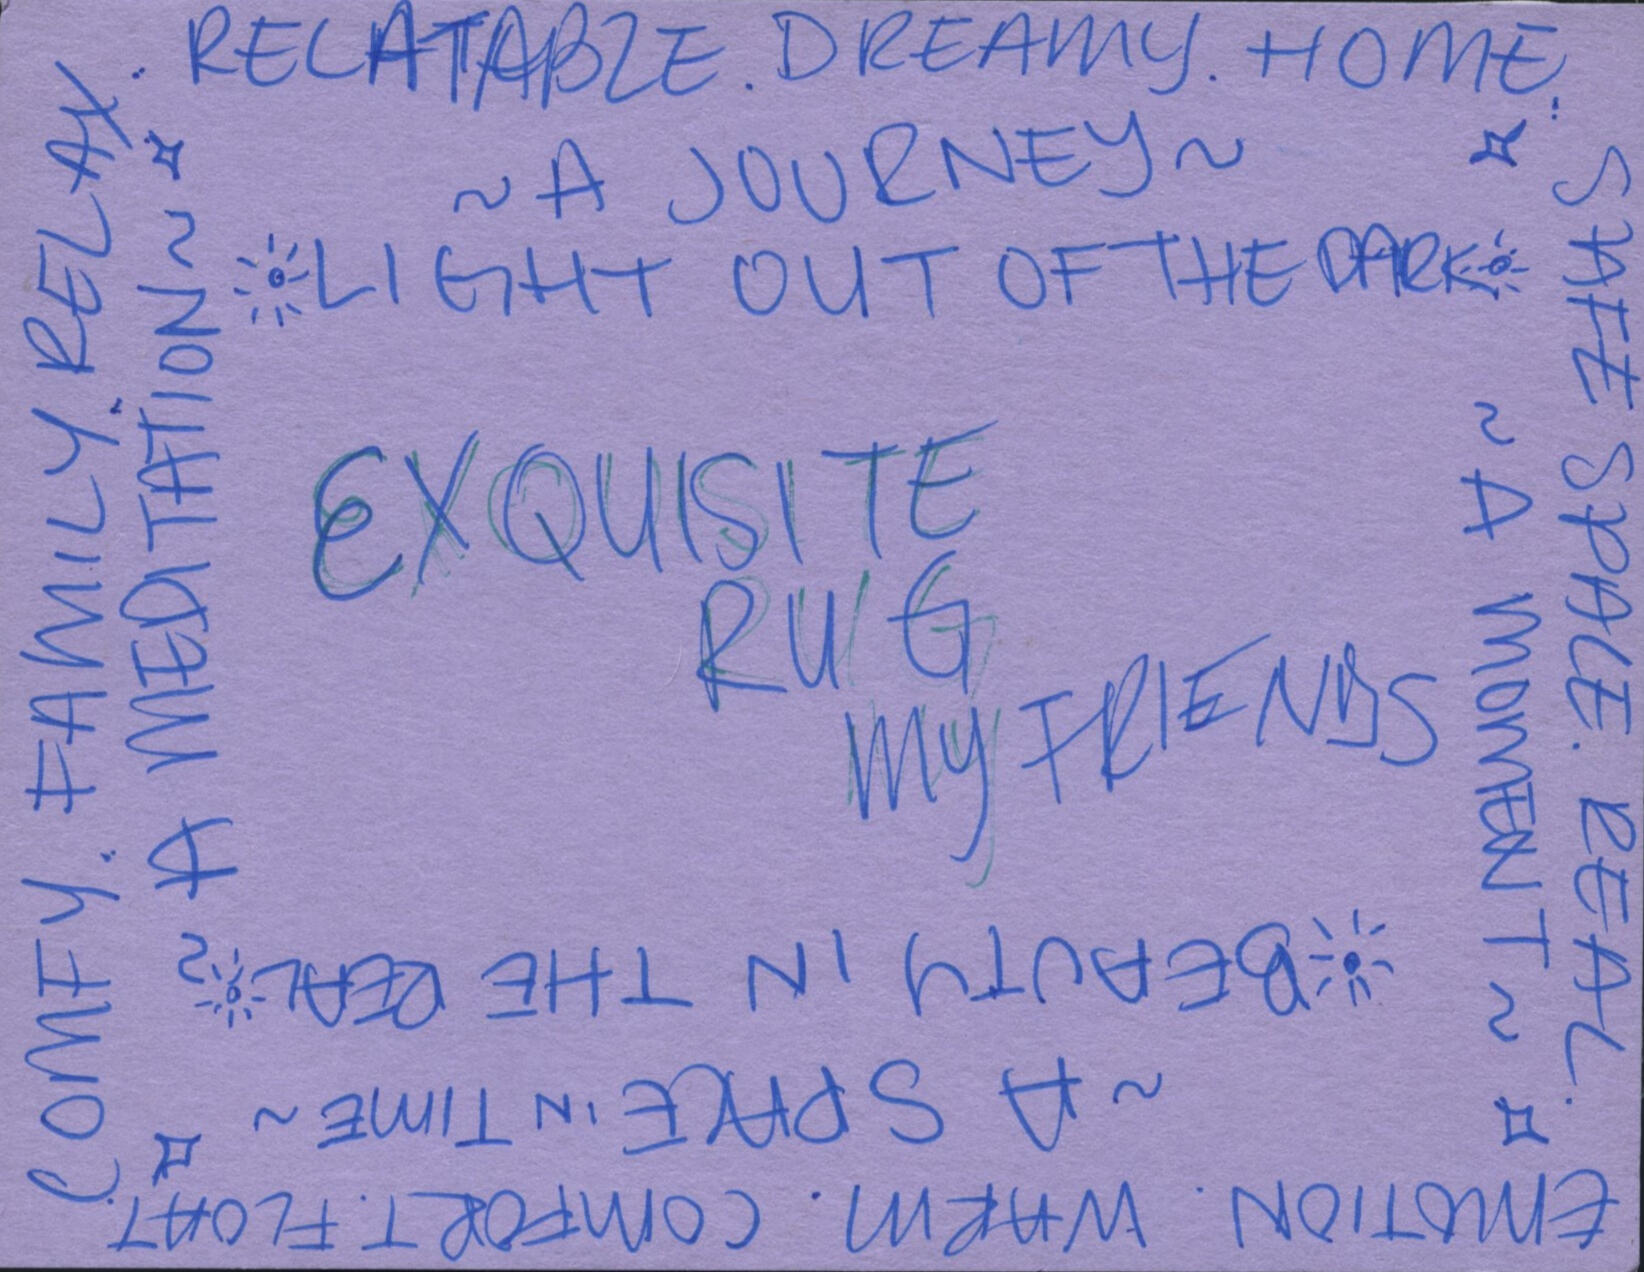 RELATABLE. DREAMY. HOME.
~ A JOURNEY ~
LIGHT OUT OF THE DARK
SAFE SPACE. REAL.
~ A MOMENT ~
EMOTION. WARM. COMFORT. FLOAT.
~ A SPACE IN TIME ~
BEAUTY IN THE REAL
COMFY. FAMILY. RELAX.
~ A MEDITATION ~
EXQUISITE
RUG
MY FRIENDS